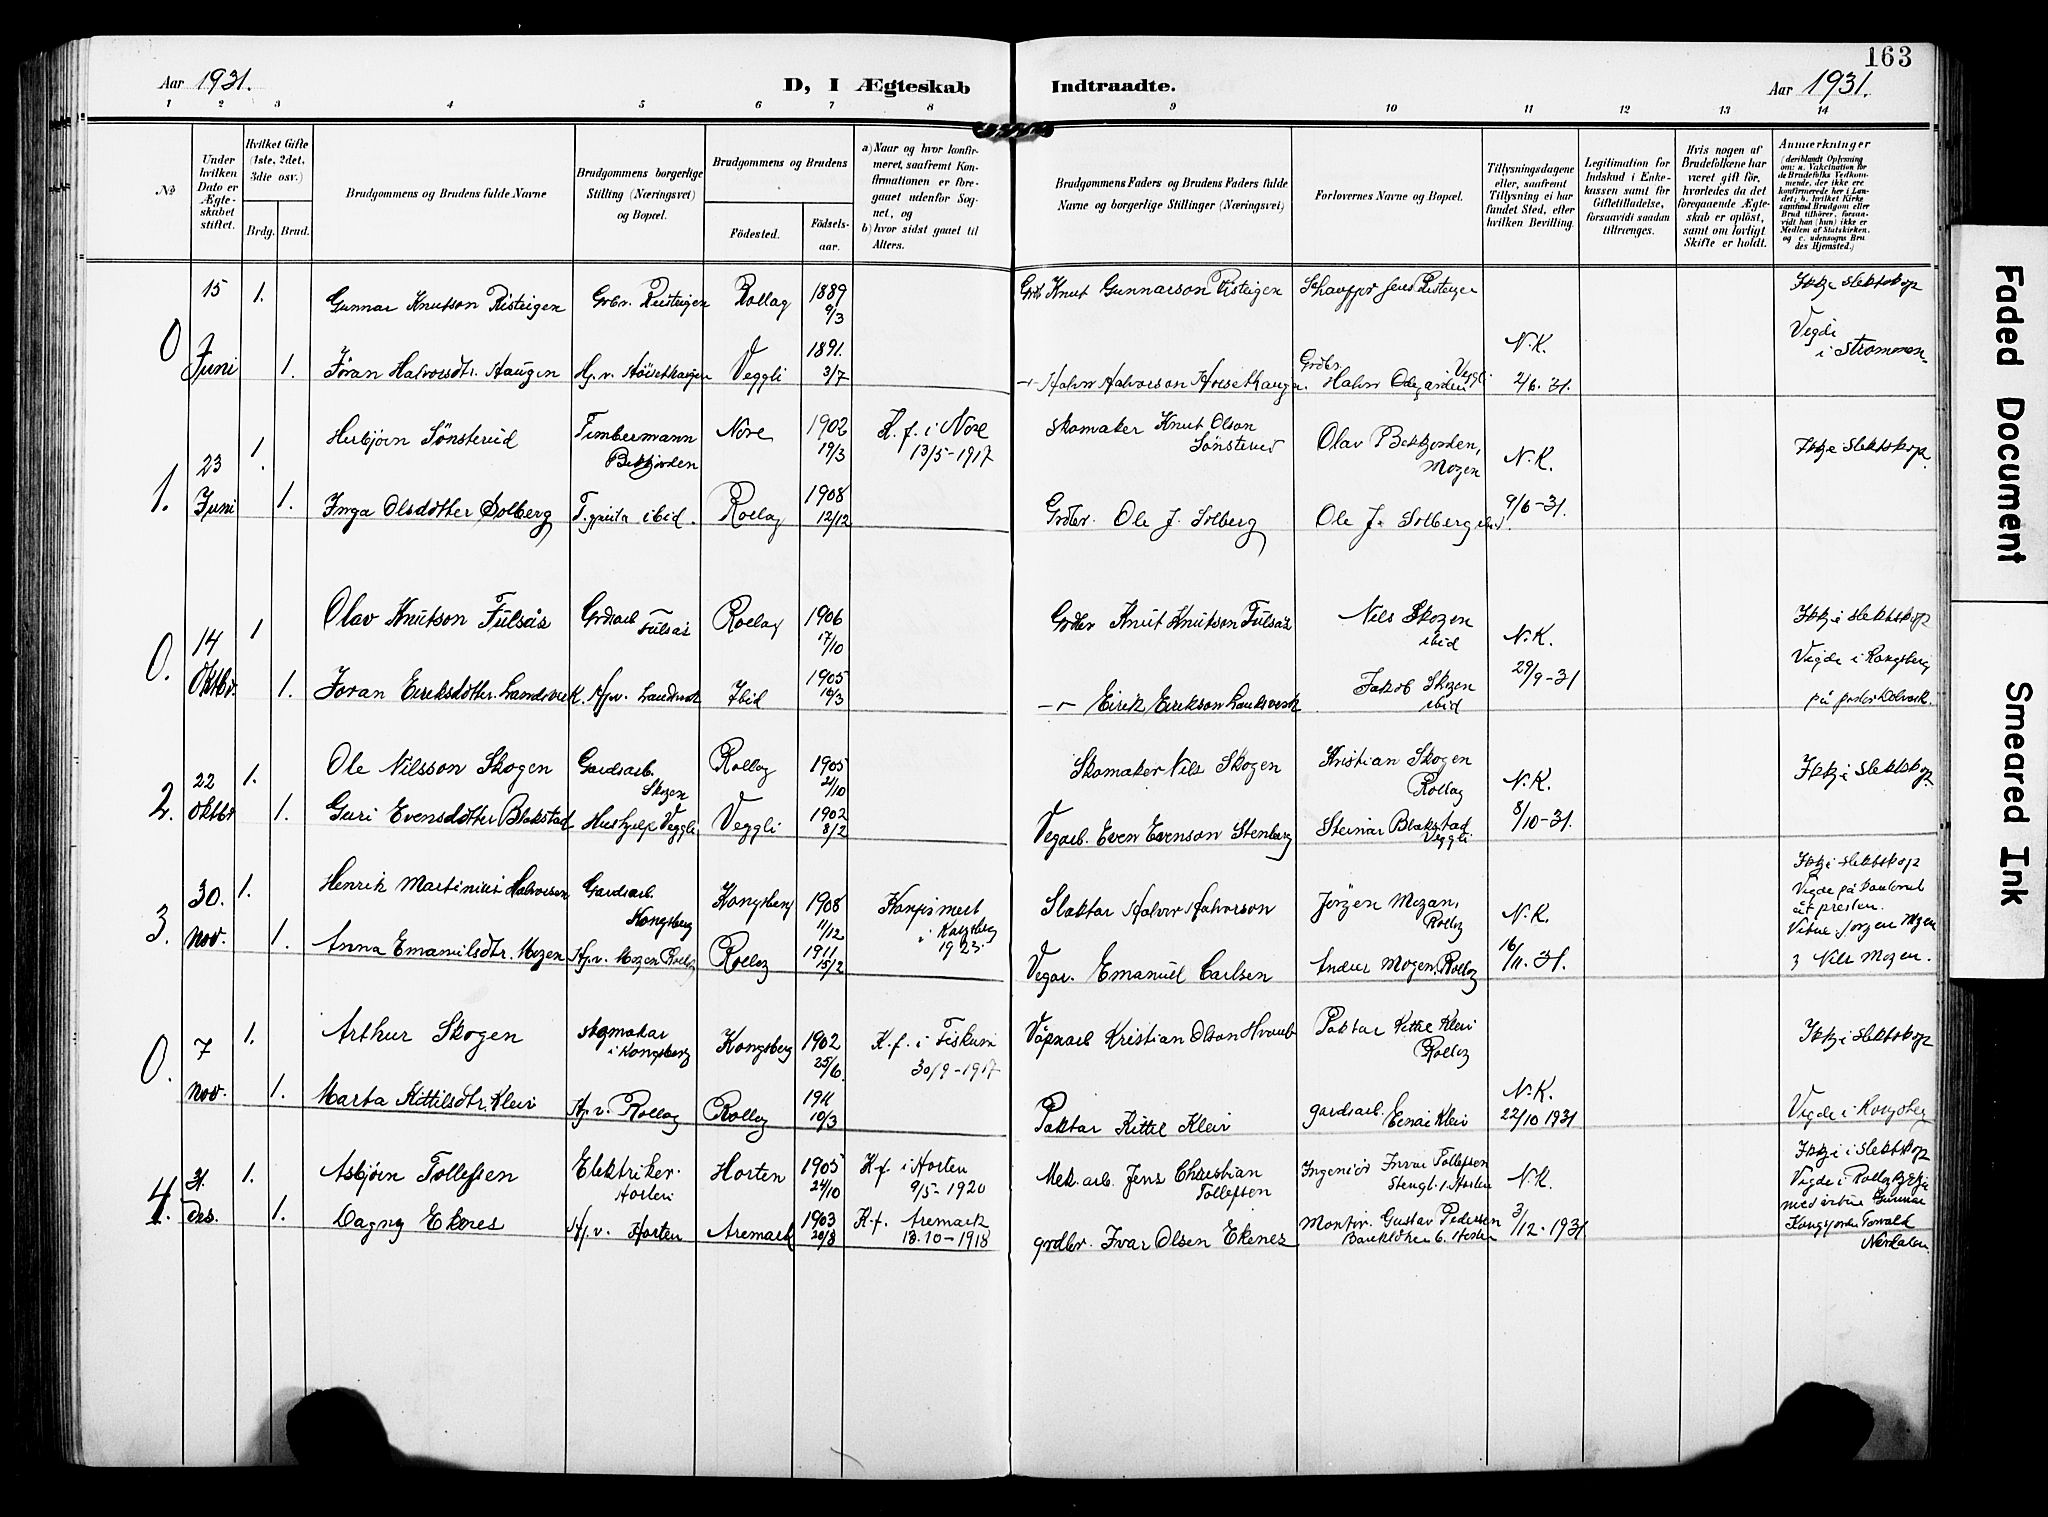 163
Aar 1931.
D, I Ægteskab Indtraadte.
Aar 1931.
1 2 3 4 5 6 7 8 9 10 11 12 13 14
№
Under hvilken Dato er Ægteskabet stiftet.
Hvilket Gifte (1ste, 2det, 3die osv.)
Brdg. Brud.
Brudgommens og Brudens fulde Navne
Brudgommens borgerlige Stilling (Næringsvei) og Bopæl.
Brudgommens og Brudens
Födested.
Födselsaar.
a) Naar og hvor konfirmeret, saafremt Konfirmationen er foregaaet udenfor Sognet, og
b) hvor sidst gaaet til Alters.
Brudgommens Faders og Brudens Faders fulde Navne og borgerlige Stillinger (Næringsvei)
Forlovernes Navne og Bopæl.
Tillysningsdagene eller, saafremt Tillysning ei har fundet Sted, efter hvilken Bevilling.
Legitimation for Indskud i Enkekassen samt for Giftetilladelse, forsaavidt saadan tiltrænges.
Hvis nogen af Brudefolkene har været gift før, hvorledes da det foregaaende Ægteskab er opløst, samt om lovligt Skifte er holdt.
Anmærkninger
(deriblandt Oplysning om: a. Vakcination for de Brudefolks Vedkommende, der ikke ere konfirmerede her i Landet; b. hvilket Kirkesamfund Brudgom eller Brud tilhører, forsaavidt han (hun) ikke er Medlem af Statskirken, og c. udensogns Brudes Hjemsted.)
15 1. Gunnar Knutson Risteigen Grbr. Risteigen Rollag 1889 9/3 Knut Gunnarson Risteigen Ikkje slektskap
0 7 Juni 1. Jöran Halvorsdtr. Haugen Hj.v. Veggli 1891. 3/7 Halvor Halvorson Grdbr. Halvor Odegarden Veggli N.K. 2/6. 31. Vigde i Strommen
1. 23 Juni 1. Herbjörn Sönsterud Timbermann Nore 1902 19/3 K.f. i Nore 13/5-1917 Skomaker Knut Olson Sönsterud Olav Mogen N.K. Ikkje slektskap.
1. Inga Olsdotter Solberg ibid. Rollag 1908 12/12 Grdbr. Ole J. Solberg Ole J. Solberg 9/6-31.
0. 14 Oktbr. 1 Olav Knutson Fulsås Grdsarb. Fulsås Rollag 1906 17/10 Grdbr Knut Knutson Fulsås Nils Skogen ibid N.K. Ikkje slektskap
1. Joran Eiriksdotter Landsverk. Hj.v. Landsverk Ibid 1905 Eirik Eirikson Landsverk Jakob Skogen ibid 29/9-31 Vigde i Kongsberg på
2. 22 Oktbr 1. Ole Nilsson Skogen Gardsarb. Skogen Rollag 1905 21/10 Skomaker Nils Skogen Kristian Skogen Rollag N.K. Ikkje slektskap
1. Guri Evensdotter Blakstad Hushjelp Veggli Veggli 1902 8/2 Vegarb. Even Evenson Stenberg Steinar Blakstad Veggli 8/10-31.
3. 30. nov. 1. Henrik Martinius Halvorsen Gardsarb. Kongsberg Kongsberg 1908 11/12 Konfirmert i Kongsberg 1923 Slaktar Halvor Halvorson Jörgen Mogan, Rollag N.K. Ikkje slektskap
1. Anna Emanuilsdtr. Mogen Hj.v. Mogen Rollag Rollag 1911 15/2 Vegar. Emanuel Carlsen Andur Mogen, Rollag 16/11. 31. Vigde på kontoret åt presten. Vitne: Jorgen Mogen og Nils Mogen.
0. 7 nov. 1. Arthur Skogen i Kongsberg Kongsberg 1902 25/6. K.f. i Fiskum 30/9-1917 Våpnarb Kristian Olson Paktar Kittil Kleiv Rollag Ikkje slektskap
1. Marta Kittilsdtr. Kleiv Hj.v. Rollag Rollag 1911 10/3 Paktar Kittil Kleiv gardsarb. Einar Kleiv N.K. 22/10 1931 Vigde i Kongsberg
4. 31. des. 1. Asbjörn Tollefsen Elektriker. Horten Horten 1905 24/10 K.f. i Horten 9/5-1920 Mek. arb. Jens Christian Tollefsen Ingeniör Ivar Tollefsen Horten N.K. Ikkje i slektskap
1. Dagny Ekenes Hj.v. Horten Aremark 1903 K.f. Aremark 13.10-1918 grdbr. Ivar Olsen Ekenes Montör Gustav Pedersen Horten 3/12. 1931 Vigde i Rollag kyrkje med vitne Gunnar Torvald
Faded Document
Smeared Ink